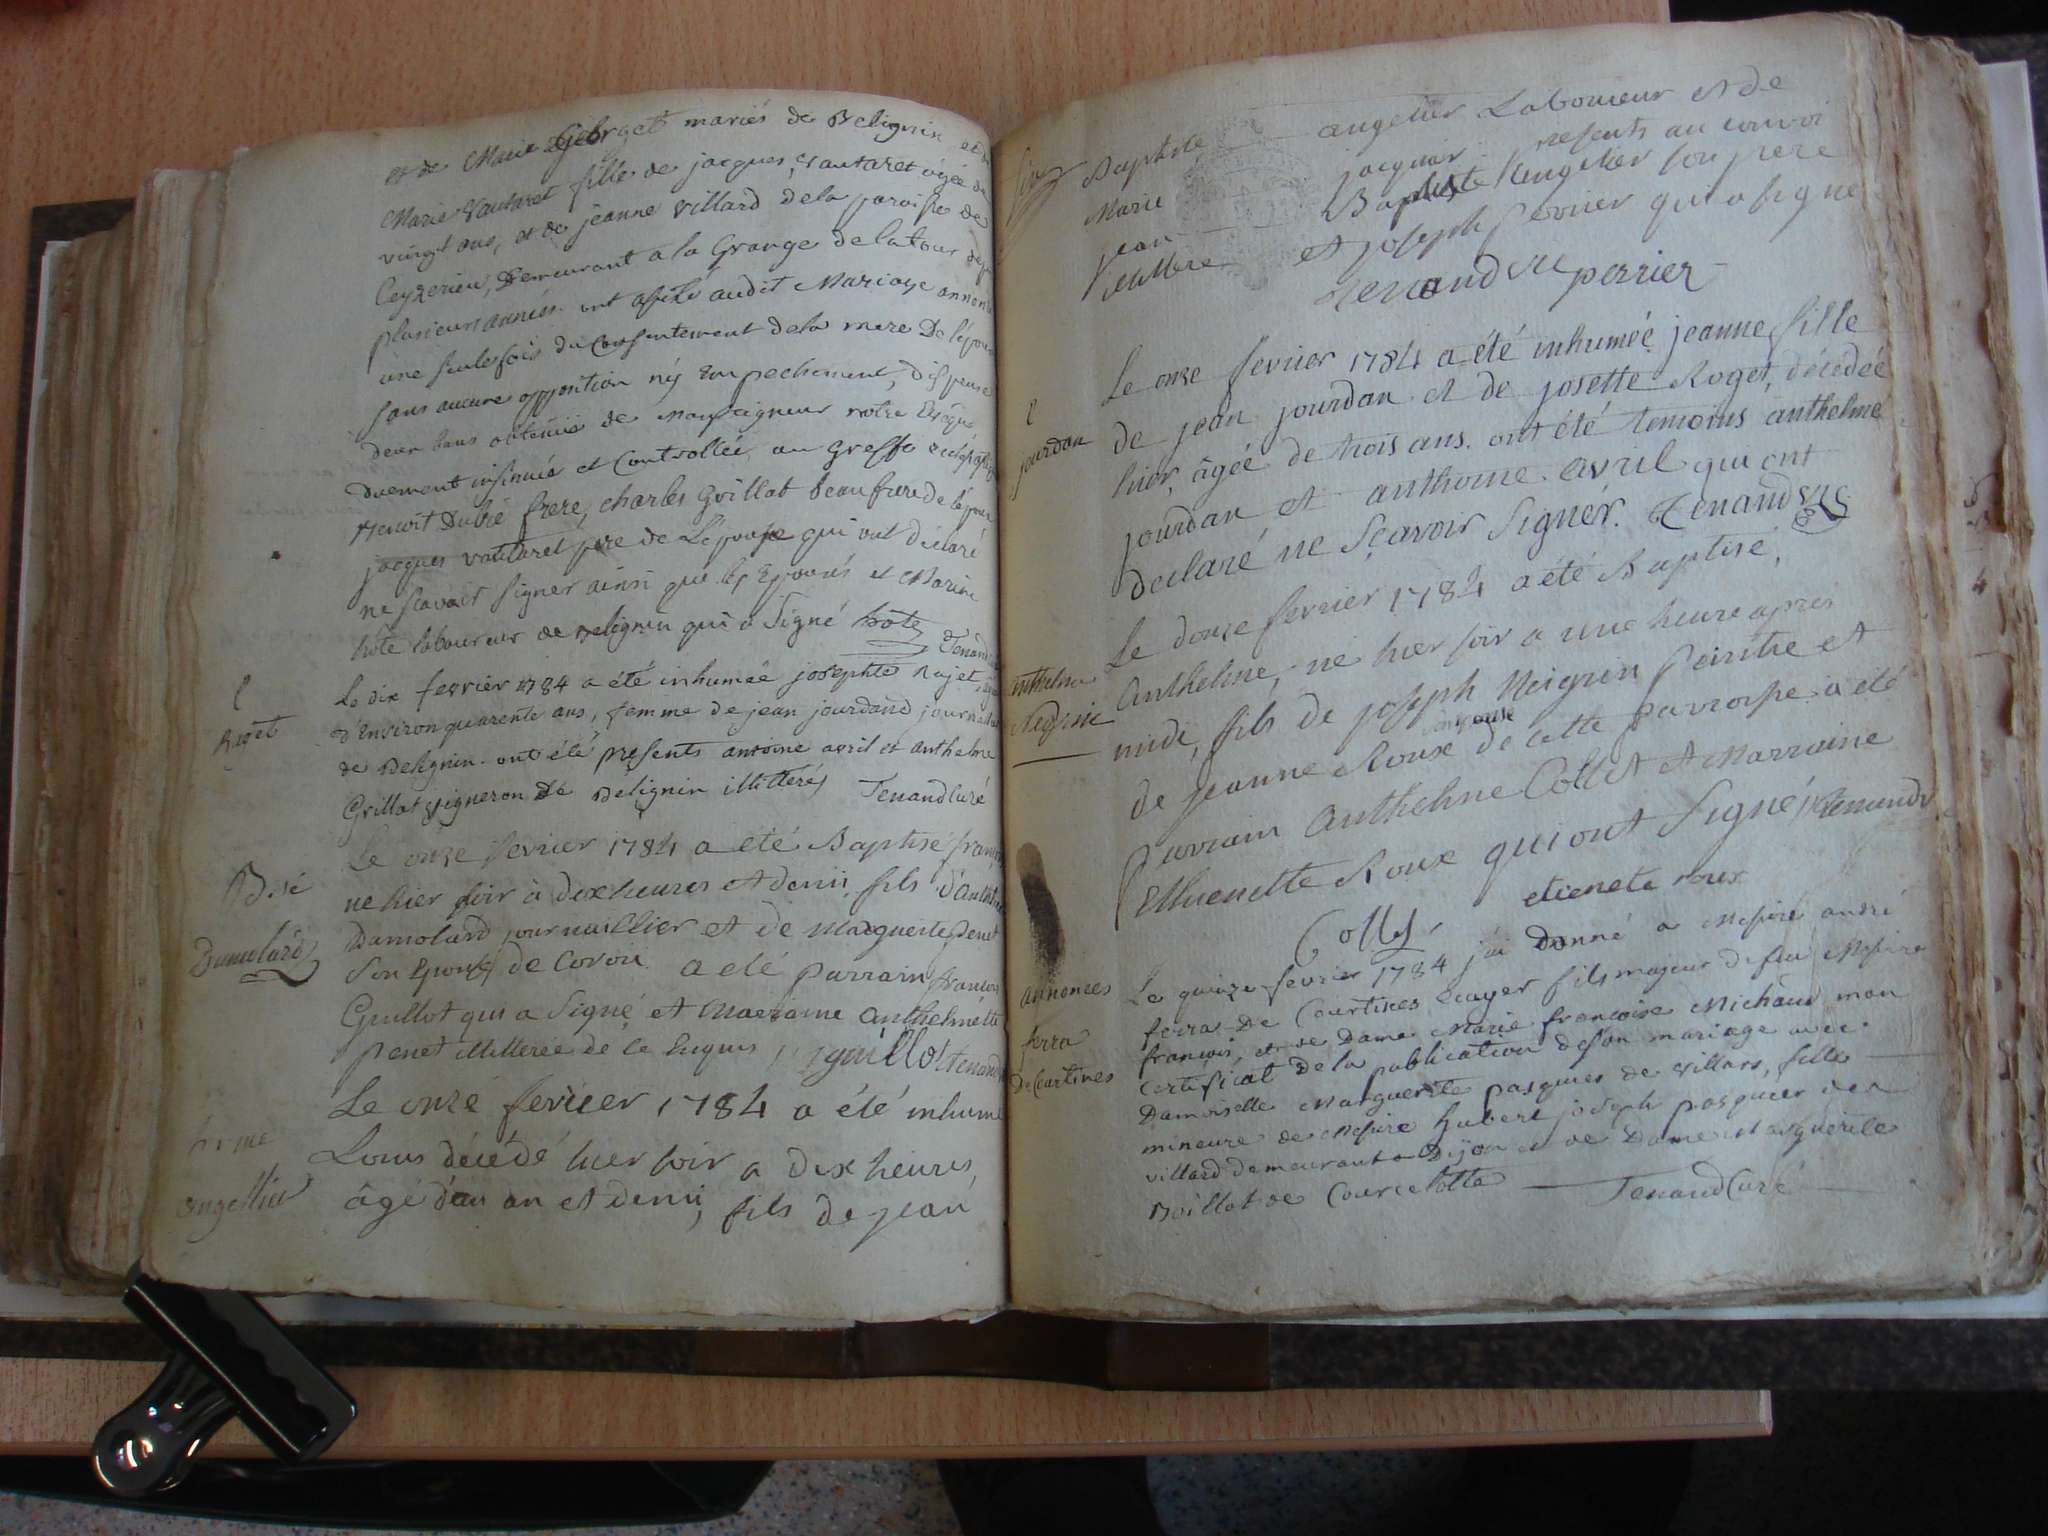 et de Marie Georget mariés de Belignin et de
Marie Vautaret fille de jacques Vautaret agée de
vingt ans, et de jeanne villard de la paroisse de
Ceyzerieu, Demeurant a la Grange de la tour
plusieurs années. ont
une seule fois du Consentement de la mere De l'époux
sans aucune opposition ny Empechement, Dispense
Deux bans obtenue de Monseigneur notre Evêque
Duement insinuée et Controllée au Greffe
Benoit Dubié frere, charles Grillot beaufrere de
jacques vautaret pere de L'épouse qui ont déclaré
ne scavoir signer ainsi que les Epoux et
hote laboureur de Belignin qui a signé hote Tenand
L
Roget
Le dix fevrier 1784 a été inhumée josephte Rojet,
d'Environ quarente ans, femme de jean jourdand
de Belignin. ont été presents antoine avril et anthelme
Grillot vigneron De Belignin illitterés Tenand Curé
Dumolard
Le onze fevrier 1784 a été Baptisé
né hier soir à dix heures et demi, fils d'
Damolard journaillier et de Marguerite penet
Son Epouse de Coron a été parrain francois
Guillot qui a Signé et Marraine Anthelmette
penet illitterée de guillot tenand
angellier
Le onze fevrier 1784 a été inhumé
Louis décédé hier soir a dix heures,
âgé d'un an et demi, fils de jean
Baptiste angelier Laboureur et de
Marie jacquier presents au convoi
jean Baptiste angelier son pere
et joseph perrier qui a signé
Tenand perrier
L
jourdan
Le onze fevrier 1784 a été inhumée jeanne fille
de jean jourdan et de josette Roget, décédée
hier, âgée de trois ans. ont été temoins anthelme
jourdan et anthoine avril qui ont
declaré ne sçavoir Signer. Tenand
anthelme
Neigrin
Le douze fevrier 1784 a été Baptisé,
Anthelme, né hier soir a une heure aprés
midi, fils de joseph Neigrin peintre et
de jeanne Roux son epouse de cette paroisse a été
parrain Anthelme Collet et Marraine
Roux qui ont signé Tenand
Collet etienete roux
annonces
ferra
De Courtines
Le quinze fevrier 1784 j'ai Donné a Messire andré
ferra De Courtines Ecuyer fils majeur de feu Messire
francois, et de Dame Marie francoise Michaud mon
Certificat De la publication de son mariage avec
Damoiselle Marguerite pasquier de villars, fille
mineure de Messire hubert joseph pasquier de
villard demeurant a Dijon et de Dame Marguerite
Boillot de Courcelotte Tenand Curé